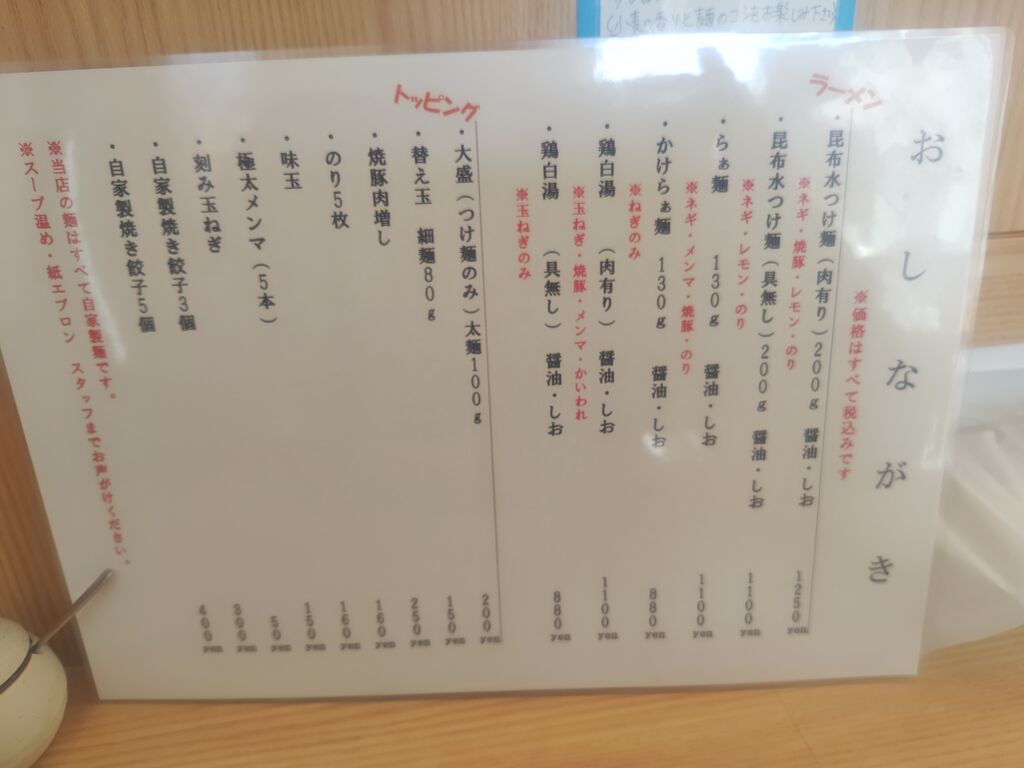 小麦の香りと麺のコシをお楽しみ下さい
おしながき
※価格はすべて税込みです
ラーメン
・昆布水つけ麺(肉有り)200g 醤油・しお 1250yen
※ネギ・焼豚・レモン・のり
・昆布水つけ麺(具無し)200g 醤油・しお 1100yen
※ネギ・レモン・のり
・らぁ麺 130g 醤油・しお 1100yen
※ネギ・メンマ・焼豚・のり
・かけらぁ麺 130g 醤油・しお 880yen
※ねぎのみ
・鶏白湯 (肉有り) 醤油・しお 1100yen
※玉ねぎ・焼豚・メンマ・かいわれ
・鶏白湯 (具無し) 醤油・しお 880yen
※玉ねぎのみ
トッピング
・大盛(つけ麺のみ)太麺100g 200yen
・替え玉 細麺80g 150yen
・焼豚肉増し 250yen
・のり5枚 160yen
・味玉 160yen
・極太メンマ(5本) 150yen
・刻み玉ねぎ 50yen
・自家製焼き餃子3個 300yen
・自家製焼き餃子5個 400yen
※当店の麺はすべて自家製麺です。
※スープ温め・紙エプロン スタッフまでお声がけください。